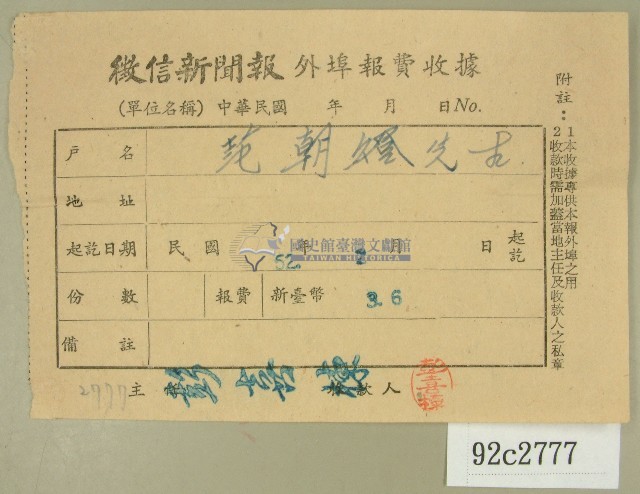 徵信新聞報 外埠報費收據
(單位名稱) 中華民國 年 月 日 No.
戶名 范朝燈先生
地址
起訖日期 民國 52年 2月 日 起訖
份數 報費 新臺幣 36
備註
主 收款人
附註：
1本收據專供本報外埠之用
2收款時需加蓋當地主任及收款人之私章
國史館臺灣文獻館
TAIWAN HISTORICA
2777
92c2777